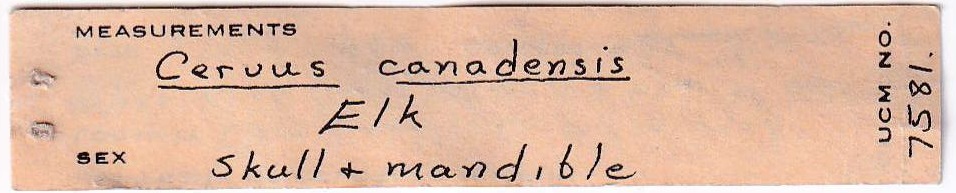 MEASUREMENTS
Cervus canadensis
Elk
SEX
Skull + mandible
UCM NO.
7581.